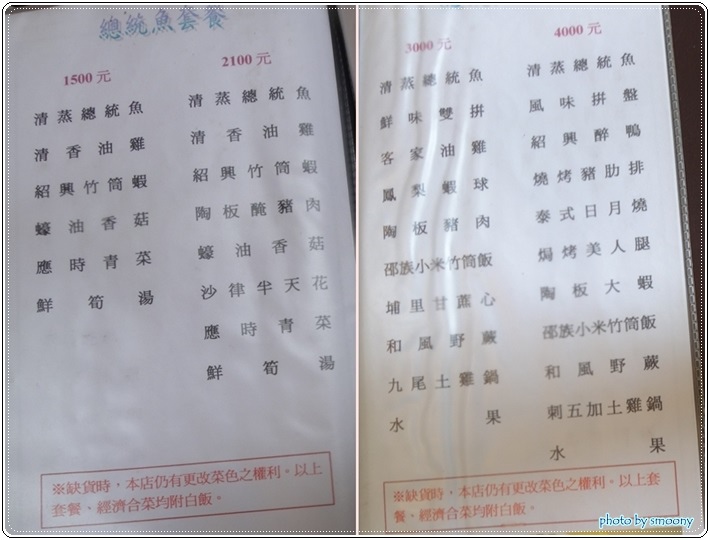 總統魚套餐
1500元
清蒸總統魚
清香油雞
紹興竹筒蝦
蠔油香菇
應時青菜
鮮筍湯
2100元
清蒸總統魚
清香油雞
紹興竹筒蝦
陶板醃豬肉
蠔油香菇
沙律半天花
應時青菜
鮮筍湯
※缺貨時，本店仍有更改菜色之權利。以上
套餐、經濟合菜均附白飯。
3000元
清蒸總統魚
鮮味雙拼
客家油雞
鳳梨蝦球
陶板豬肉
邵族小米竹筒飯
埔里甘蔗心
和風野蕨
九尾土雞鍋
水果
4000元
清蒸總統魚
風味拼盤
紹興醉鴨
燒烤豬肋排
泰式日月燒
焗烤美人腿
陶板大蝦
邵族小米竹筒飯
和風野蕨
刺五加土雞鍋
水果
※缺貨時，本店仍有更改菜色之權利。以上套
餐、經濟合菜均附白飯。
photo by smoony